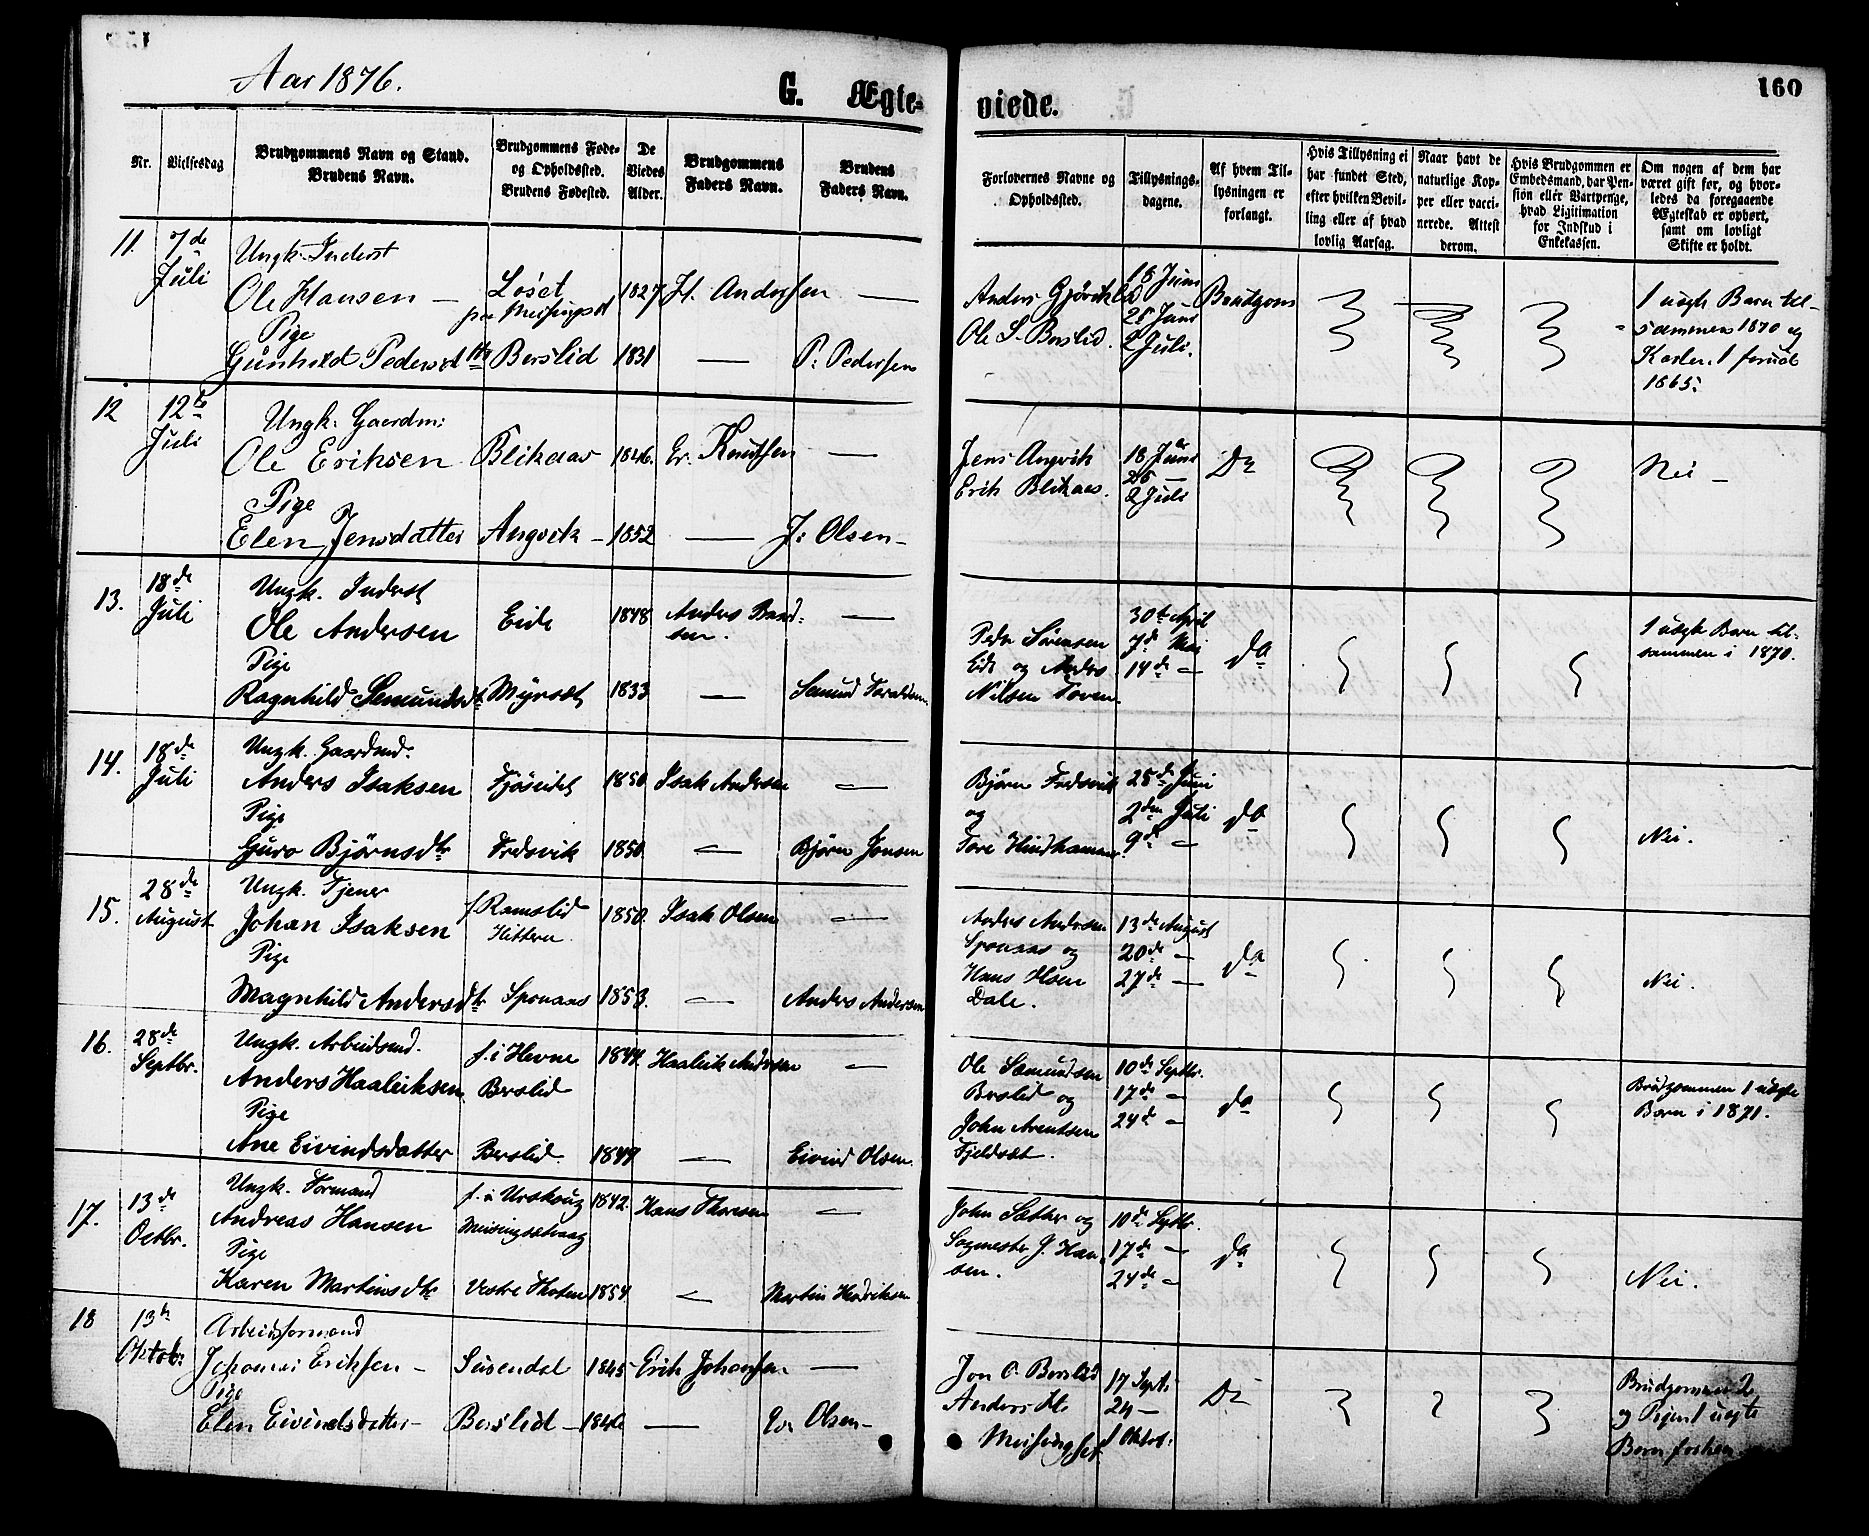 Aar 1876.
G. Ægteviede.
160
Nr.
Vielsesdag
Brudgommens Navn og Stand.
Brudens Navn.
Brudgommens Føde-
og Opholdssted.
Brudens Fødested.
De
Viedes
Alder.
Brudgommens
Faders Navn.
Brudens
Faders Navn.
Forlovernes Navne og
Opholdssted.
Tillysnings-
dagene.
Af hvem Til-
lysningen er
forlangt.
Hvis Tillysning ei
har fundet Sted,
efter hvilken Bevil-
ling eller af hvad
lovlig Aarsag.
Naar havt de
naturlige Kop-
per eller vacci-
nerede. Attest
derom.
Hvis Brudgommen er
Embedsmand, har Pen-
sion eller Vartpenge,
hvad Ligitimation
for Indskud i
Enkekassen.
Om nogen af dem har
været gift før, og hvor-
ledes da foregaaende
Ægteskab er ophørt,
samt om lovligt
Skifte er holdt.
11. 7de Juli
Ungk. Inderst
Ole Hansen — Løset 1827. H. Andersen —
Pige
Gunhild Pedersdtr Berslid 1831 — P. Pedersen
Anders Gjøvik
Ole S. Berslid.
18 Juni
25 Juni
2 Juli.
Brudgom
1 uægte Barn til-
sammen 1870 og
1865.
12 12te Juli
Ungk. Gaardm:
Ole Eriksen Blikaas 1846. Er. Knutsen —
Pige
Elen Jensdatter Angvik — 1852 — J: Olsen —
Jens Angvik
Erik Blikaas.
18 Juni
25 —
2 Juli
Do
Nei —
13. 18de Juli
Ungk. Inderst
Ole Andersen Eide 1848 Anders Baad-
sen. —
Pige
Ragnhild Semundsdt. Myrset 1833 — Semund
Peder Sørensen
Eide og Anders
Nilsen Toven.
30te April
7de Mai
14de —
do
1 uægte Barn til-
sammen i 1870.
14. 18de Juli
Ungk. Gaardmd.
Anders Isaksen Fjøseidet 1850 Isak Andersen —
Pige
Guro Bjørnsdtr Fredsvik 1850 — Bjørn Jonsen
Bjørn Fredsvik
og
Tore
25de Juni
2den Juli
9de —
do
Nei.
15. 28de August
Ungk. Tjener
Johan Isaksen f. Ramslid 1850. Isak Olsen —
Hitteren
Pige
Magnhild Andersdtr. Sponaas 1853. — Anders Andersen
Anders Andersen
Sponaas og
Hans Olsen
Dale.
13de August
20de —
27de —
do
Nei.
16. 28de Septbr.
Ungk. Arbeidsmd.
Anders Haaleiksen f. i Hevne 1847. Haaleik Andersen —
Berslid
Pige
Ane Eivindsdatter Berslid. 1847 — Eivind Olsen.
Ole Semundsen
Berslid og
John Arentsen
Fjeldset.
10de Septbr.
17de —
24de —
do
Brudgommen 1 uægte
Barn i 1871.
17. 13de Octbr.
Ungk. Formand
Andreas Hansen f. i Urskoug 1842. Hans Thoresen —
Meisingsetvaag
Pige
Karen Martinsdtr Vestre Thoten 1854 — Martin Hendriksen
John Sæther og
Sagmester J. Han-
sen.
10de Septbr.
17de —
24de —
do
Nei.
18 13de Oktob:
Arbeidsformand
Johannes Eriksen — Susendal 1845 — Erik Johansen —
Pige
Elen Eivindsdatter — Berslid — 1840 — Ev. Olsen —
Jon O. Berslid
Anders H.
Meisingset
17 Septr
24 —
1 Oktob:
Do
Brudgommen 2
og Pigen 1 uægte
Børn